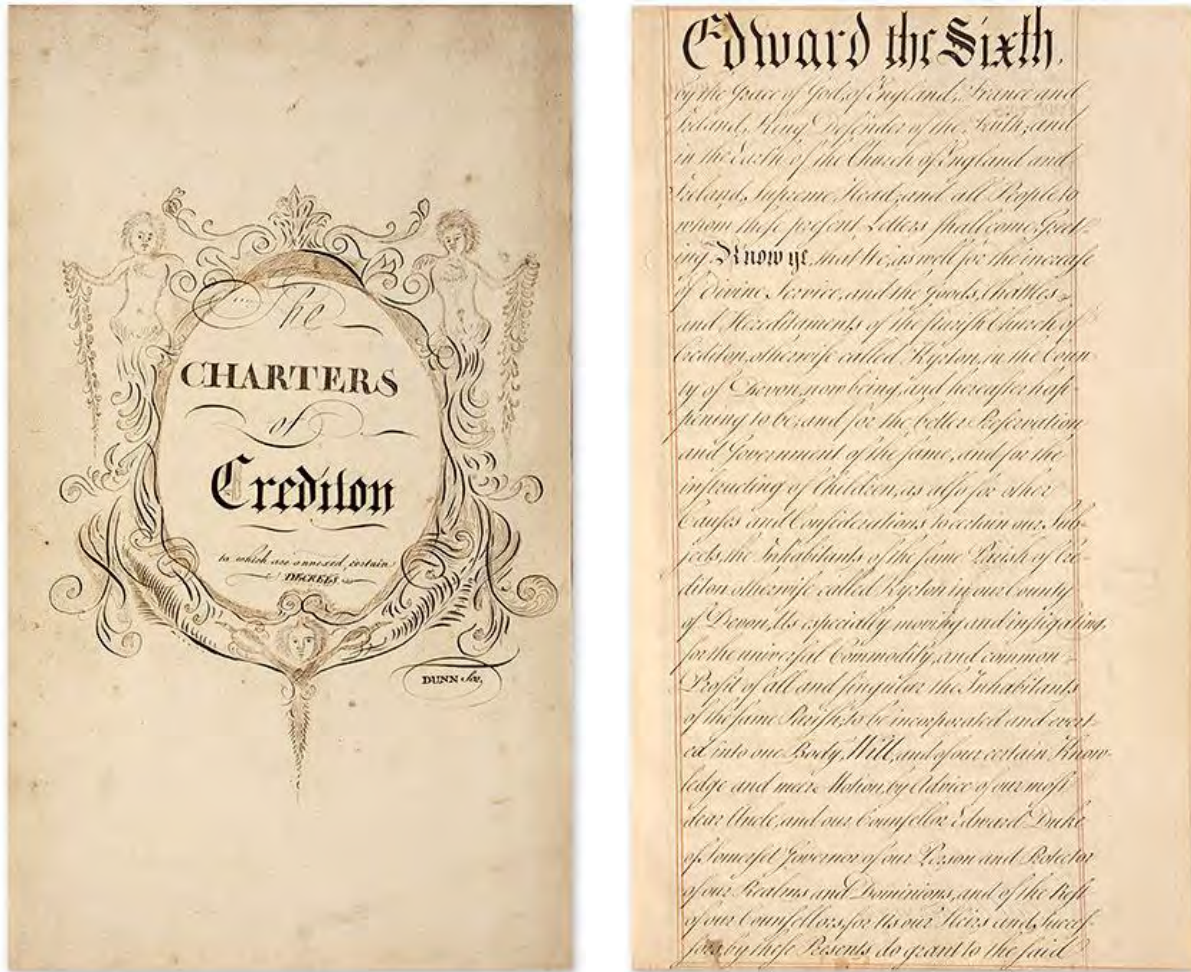 The
CHARTERS
of
Crediton
to which are annexed, certain
DECREES.
DUNN Scr,
Edward the Sixth,
by the Grace of God, of England, France and
Ireland, King, Defender of the Faith, and
in the Earth of the Church of England and
Ireland, Supreme Head, and all People to
whom these present Letters shall come Greet-
ing Know ye, that We, as well for the increase
of Divine Service, and the Goods, Chattles,
and Hereditaments of the Parish Church of
Crediton, otherwise called Kyrton, in the Coun-
ty of Devon, now being, and hereafter hap-
pening to be; and for the better Preservation
and Government of the same, and for the
instructing of Children, as also for other
Causes and Considerations to certain our Sub-
jects, the Inhabitants of the same Parish of Cre-
diton otherwise called Kyrton in our County
of Devon, Us especially moving and instigating,
for the universal Commodity, and common
Profit of all and singular the Inhabitants
of the same Parish, to be incorporated and erect-
ed into one Body, Will, and of our certain Know-
ledge and meer Motion, by Advice of our most
dear Uncle, and our Counsellor Edward Duke
of Somerset Governor of our Person and Protector
of our Realms and Dominions, and of the Rest
of our Counsellors, for Us our Heirs and Succes-
sors, by these Presents do grant to the said